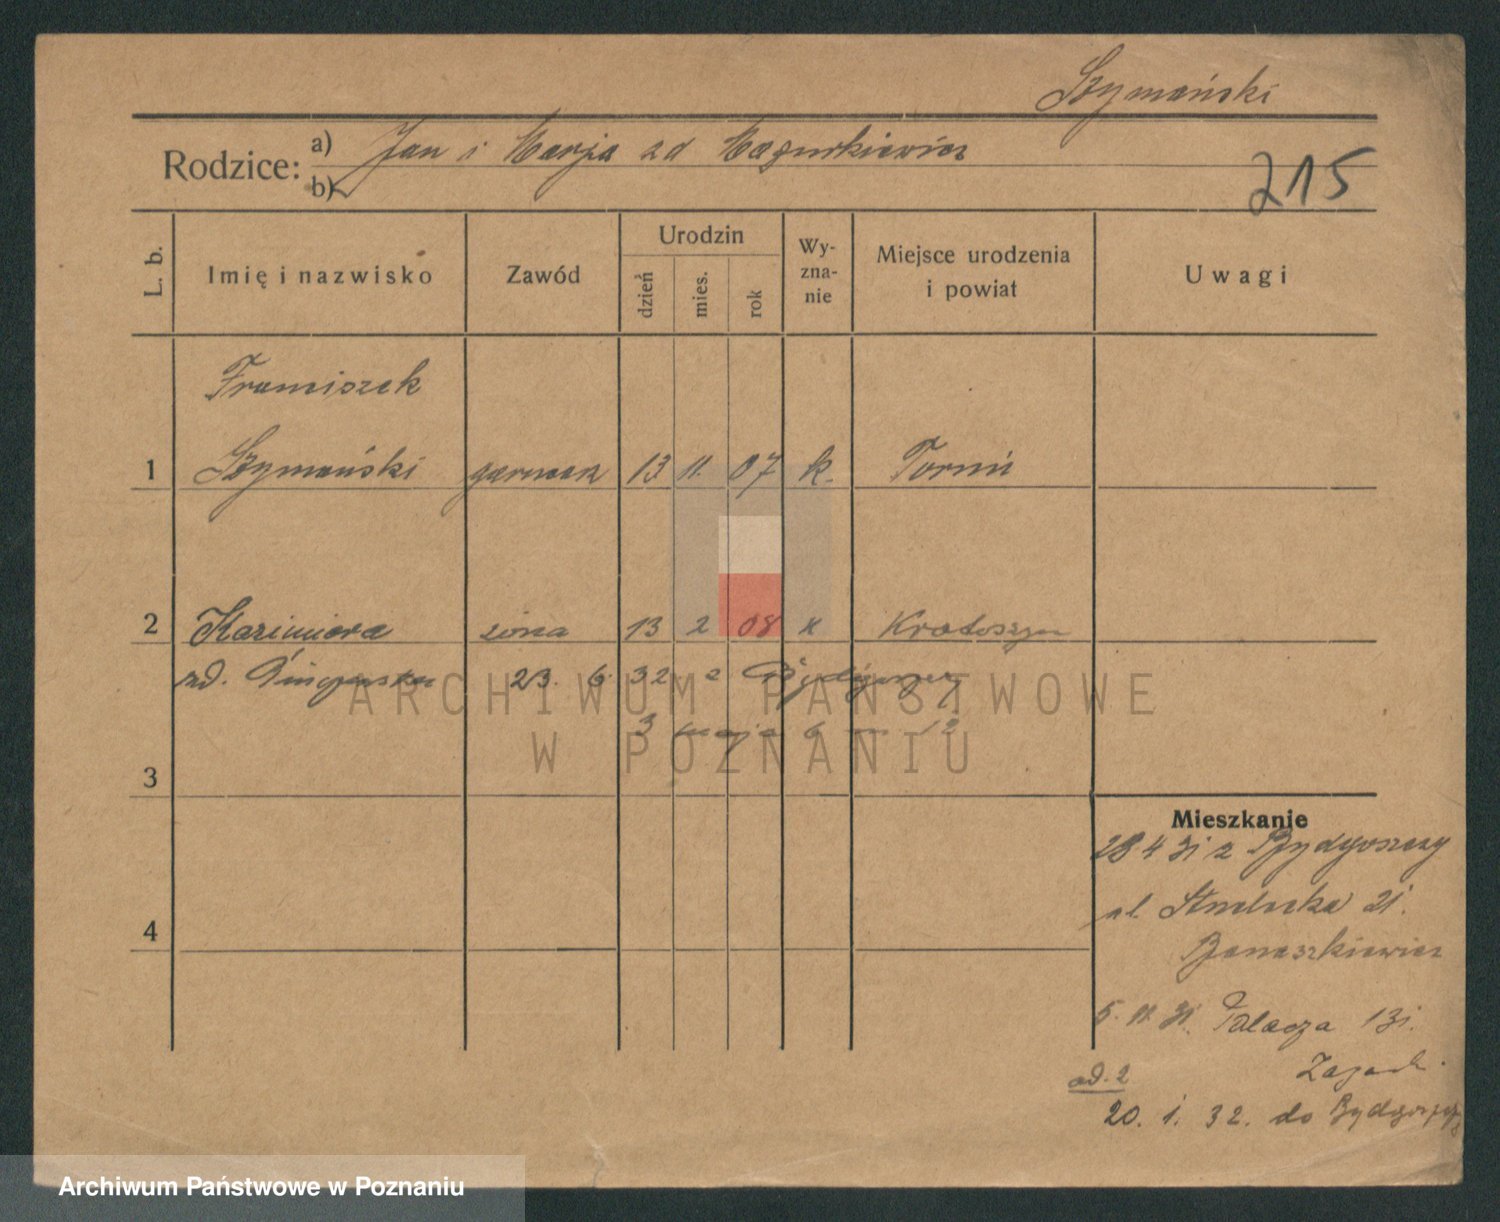 Szymański
Rodzice: a) Jan i Marja zd Mazurkiewicz
b)
215
L. b.
Imię i nazwisko
Zawód
Urodzin
dzień
mies.
rok
Wy-
zna-
nie
Miejsce urodzenia
i powiat
Uwagi
Franciszek
1 Szymański garncarz 13 11. 07 k. Toruń
2 Kazimiera żona 13 2 08 k Krotoszyn
zd. 23. 6. 32 z Bydgoszczy
3 maja 6 m 12
3
4
Mieszkanie
28 4 31 z Bydgoszczy
ul. Strzelecka 21.
Banaszkiewicz
5. 11. 31. Palacza 131.
ad. 2
20. 1. 32. do Bydgoszczy
ARCHIWUM PAŃSTWOWE
W POZNANIU
Archiwum Państwowe w Poznaniu